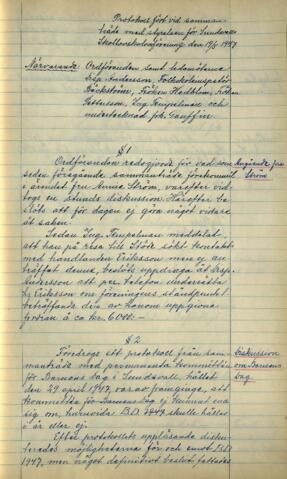 Protokoll fört vid samman-
träde med styrelsen för Sundsvalls
Skollovskoloniförening den 19/5 1947
Närvarande: Ordföranden samt ledamöterna
Disp. Andersson, Folkskoleinspektör
Bäckström, Fröken Hedblom, Fröken
Pettersson, Ing. Tempelman och
undertecknad
§ 1
Ordföranden redogjorde för vad som
sedan föregående sammanträde förekommit
i ärendet fru Anna Ström, varefter vid-
togs en stunds diskussion. Härefter be-
slöts att för dagen ej göra något vidare
åt saken.
Angående fru
Ström
Sedan Ing. Tempelman meddelat
att han på resa till Stöde sökt kontakt
med handlanden Eriksson men ej an-
träffat denne, beslöts uppdraga åt Disp.
Andersson att per telefon underrätta
Eriksson om föreningens ståndpunkt
beträffande den av honom uppgivna
fordran å ca kr. 6.000:-
§ 2
Föredrogs ett protokoll från sam-
manträde med permanenta kommittén
för Barnens Dag i Sundsvall, hållet
den 29 april 1947, varav framgick, att
kommittén för Barnens Dag ej kunnat ena
sig om huruvida B.D. 1947 skulle hållas
i år eller ej.
Diskussion
om Barnens
Dag
Efter protokollets uppläsande disku-
terades möjligheterna för och emot B.D.
1947, men något definitivt beslut fattades